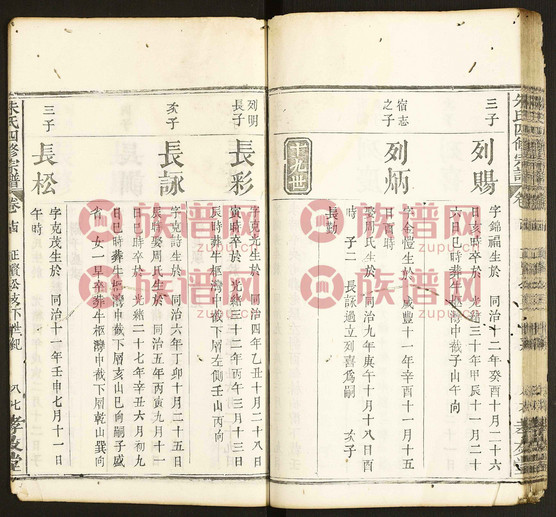 三子
列賜
字錦福生於 同治十二年癸酉十月二十六
日亥時卒於 光緒三十年甲辰十一月二十
六日巳時葬牛樞灣中截子山午向
宿志
之子
列炳
字金慢生於 咸豐十一年辛酉十一月十五
日酉時
娶周氏生於 同治九年庚午十月十八日酉
時 子二 長詠過立列喜爲嗣 次子
長勤
十九世
列明
長子
長彩
字克光生於 同治四年乙丑十月二十八日
寅時卒於 光緒三十二年丙午三月十三日
辰時葬牛樞灣中截下層左側壬山丙向
次子
長詠
字克詩生於 同治六年丁卯十月二十五日
辰時娶周氏生於 同治五年丙寅九月十一
日巳時卒於 光緒二十七年辛丑六月初九
日巳時葬牛樞灣中截下層亥山巳向嗣子盛
省 女一早卒葬牛樞灣中截下層乾山巽向
三子
長松
字克茂生於 同治十一年壬申七月十一日
午時
朱氏四修宗譜
卷
松支下世紀
八七
族谱网
zupu.cn